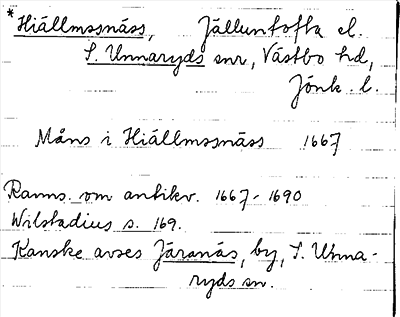 *Hiällmssnäss, Jälluntofta el.
S. Unnaryds snr, Västbo hd,
Jönk. l.
Måns i Hiällmssnäss 1667
Ranns. om antikv. 1667-1690
Wilstadius s. 169.
Kanske avses Järanäs, by, S. Unna-
ryds sn.